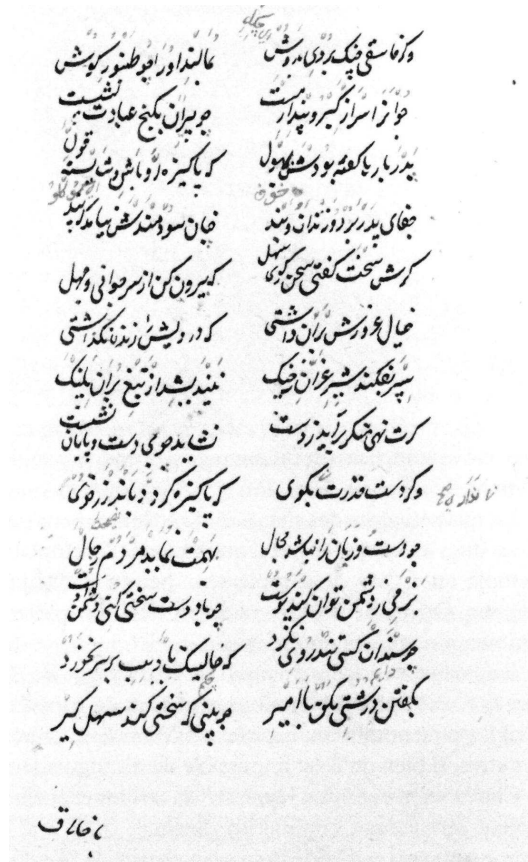 وکر فاسقی چنک بردی بدوش بمالیدی اورا چو طنبور کوش
جوانرا سر از کبر و پندار مست چو پیران بکنج عبادت نشست
پدر بارها کفته بودش بهول که پاکیزه رو باش و شایسته قول
جفای پدر برد و زندان و بند چنان سودمندش نیامد که پند
کرش سخت کفتی سخن کوی سهل که بیرون کن از سر جوانی و جهل
خیال و غرورش بران داشتی که درویش را زنده نکذاشتی
سپر نفکند شیر غران ز جنک نیندیشد از تیغ بران پلنک
کرت نهی منکر براید ز دست نشاید چو بی دست و پایان نشست
وکر دست قدرت نداری بکوی که پاکیزه کردد باندرز خوی
چو دست و زبان را نماند مجال بهمت نمایند مردی رجال
بنرمی ز دشمن توان کند پوست چو با دوست سختی کنی دشمن اوست
چو سندان کسی سخت رویی نکرد که خایسک تادیب بر سر نخورد
بکفتن درشتی مکن با امیر چو بینی که سختی کند سست کیر